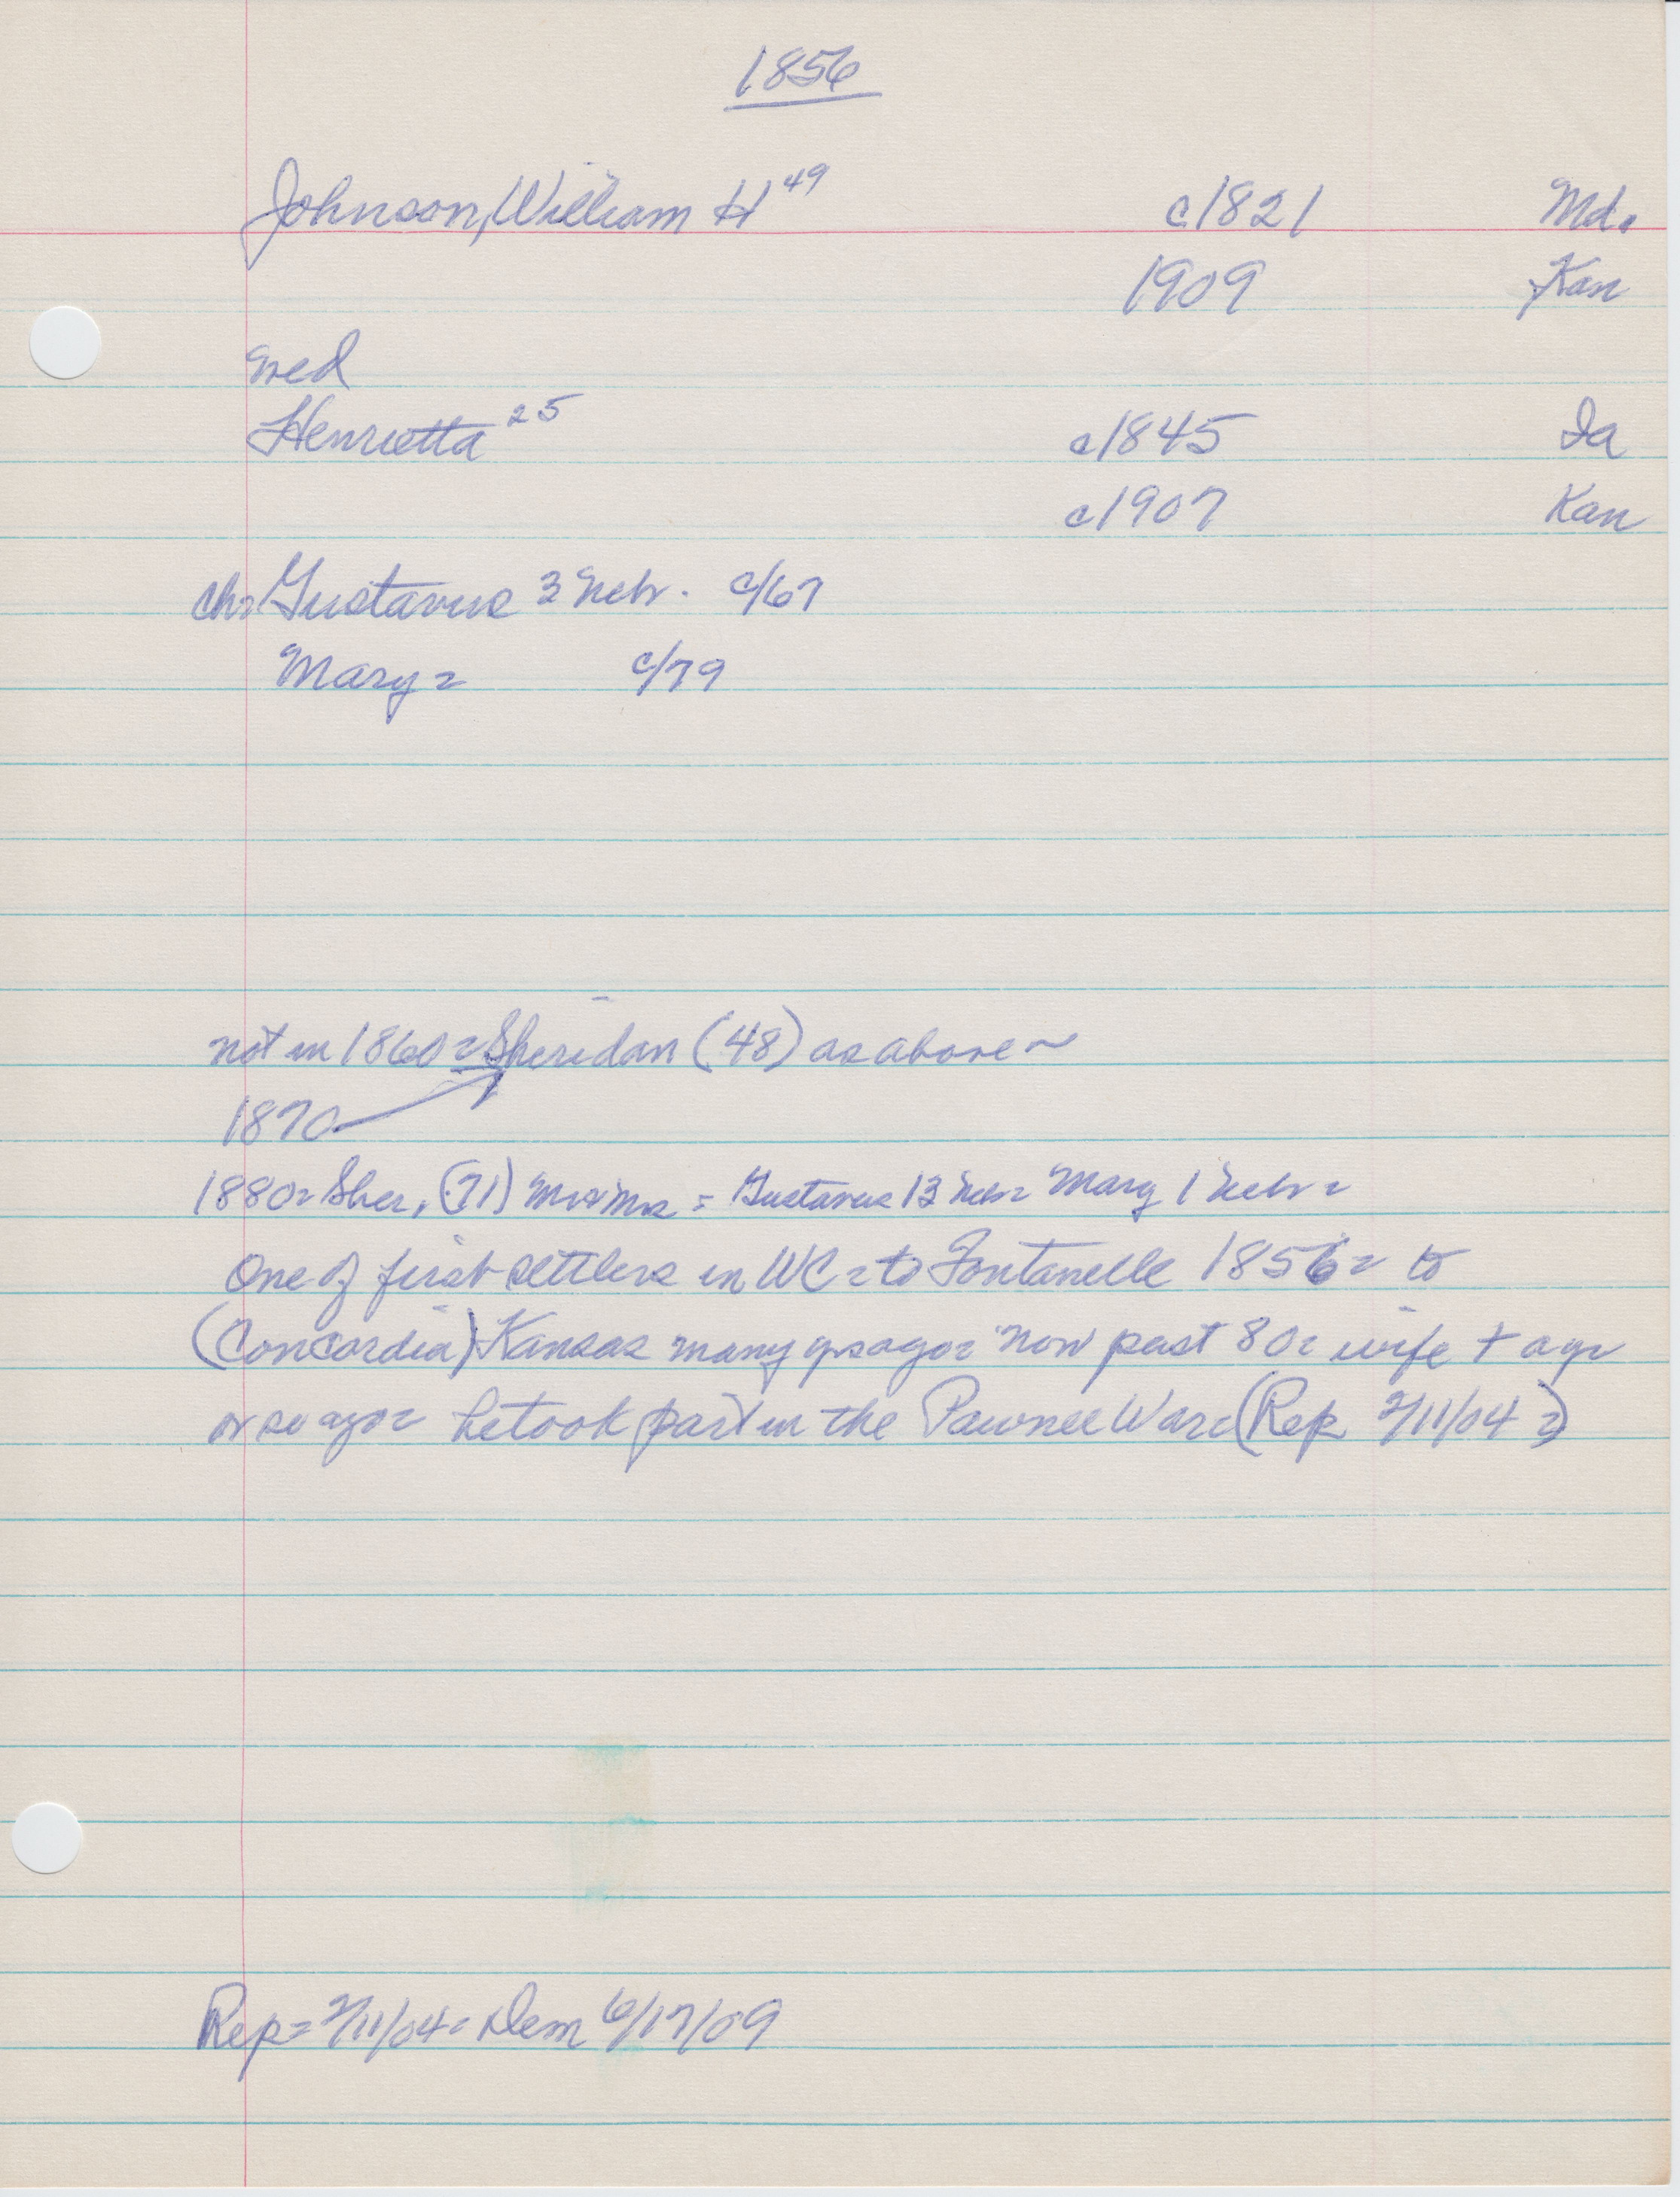 1856
Johnson, William H 49 c1821 Md.
1909 Kan
med
Henrietta 25 c1845 Ia
c1907 Kan
ch= Gustavus 3 Nebr. c/67
Mary = c/79
not in 1860 = Sheridan (48) as above ~
1870
1880= Sher, (71) Mr & Mrs = Gustavus 13 Neb= Mary 1 Nebr =
One of first settlers in WC = to Fontanelle 1856 = to
(Concordia) Kansas many yrs ago = now past 80 = wife + a yr
or so ago = he took part in the Pawnee War = (Rep 2/11/04 =)
Rep = 2/11/04 = Dem 6/17/09